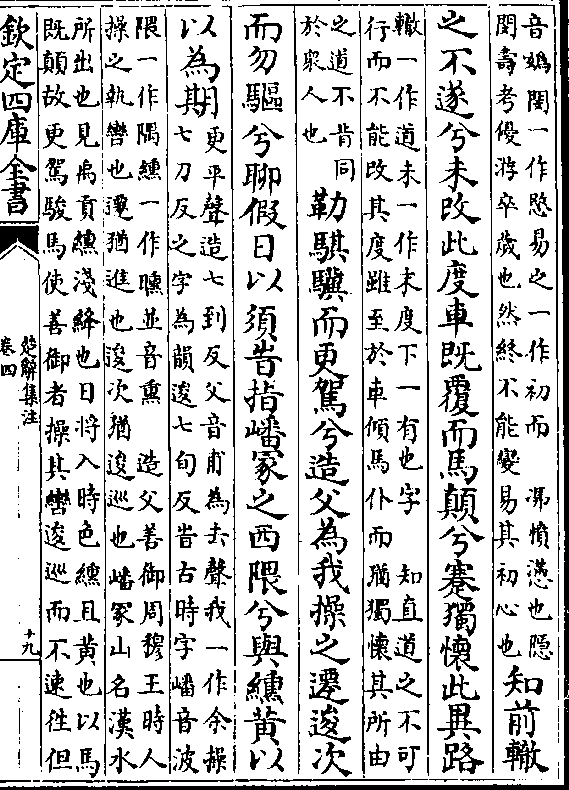 音媯閨一作愍易之一作初而　馮憤懣也隱
閔壽考優游卒歲也然終不能變易其初心也
知前轍
之不遂兮未改此度車既覆而馬顛兮蹇獨懷此異路
轍一作道未一作末度下一有也字　知直道之不可
行而不能改其度雖至於車傾馬仆而猶獨懷其所由
之道不肯同
於衆人也
勒騏驥而更駕兮造父為我操之遷逡次
而勿驅兮聊假日以須旹指嶓冢之西隈兮與纁黃以
以為期
更平聲造七到反父音甫為去聲我一作余操
七刀反之字為韻逡七旬反旹古時字嶓音波
隈一作隅纁一作曛並音熏　造父善御周穆王時人
操之執轡也遷猶進也逡次猶逡巡也嶓冢山名漢水
所出也見禹貢纁淺絳也日將入時色纁且黃也以馬
既顛故更駕駿馬使善御者操其轡逡巡而不速徃但
欽定四庫全書
楚辭集注
卷四
十九